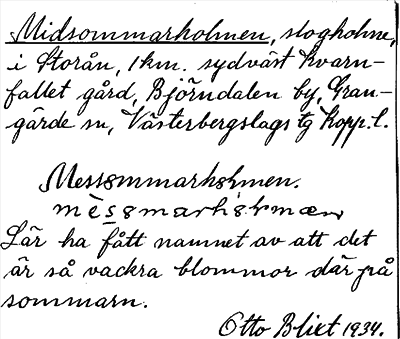 Midsommarholmen, slogholme,
i Storån, 1 km. sydväst Kvarn-
fallet gård, Björndalen by, Gran-
gärde sn, Västerbergslags tg Kopp. l.
Messommarholmen.
Lär ha fått namnet av att det
är så vackra blommor där på
sommarn.
Otto Blixt 1934.